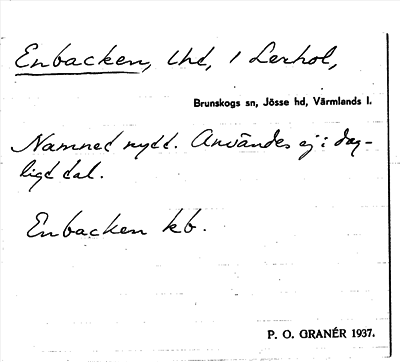 Enbacken, lhd, i Lerhol,
Brunskogs sn, Jösse hd, Värmlands l.
Namnet nytt. Användes ej i dag-
ligt tal.
Enbacken kb.
P. O. GRANÉR 1937.